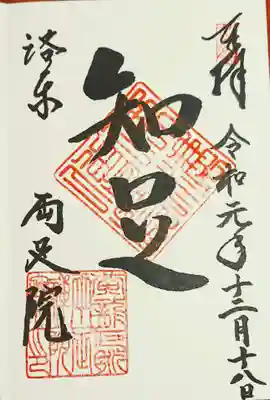 奉拝
令和元年十二月十八日
知足
洛東
両足院